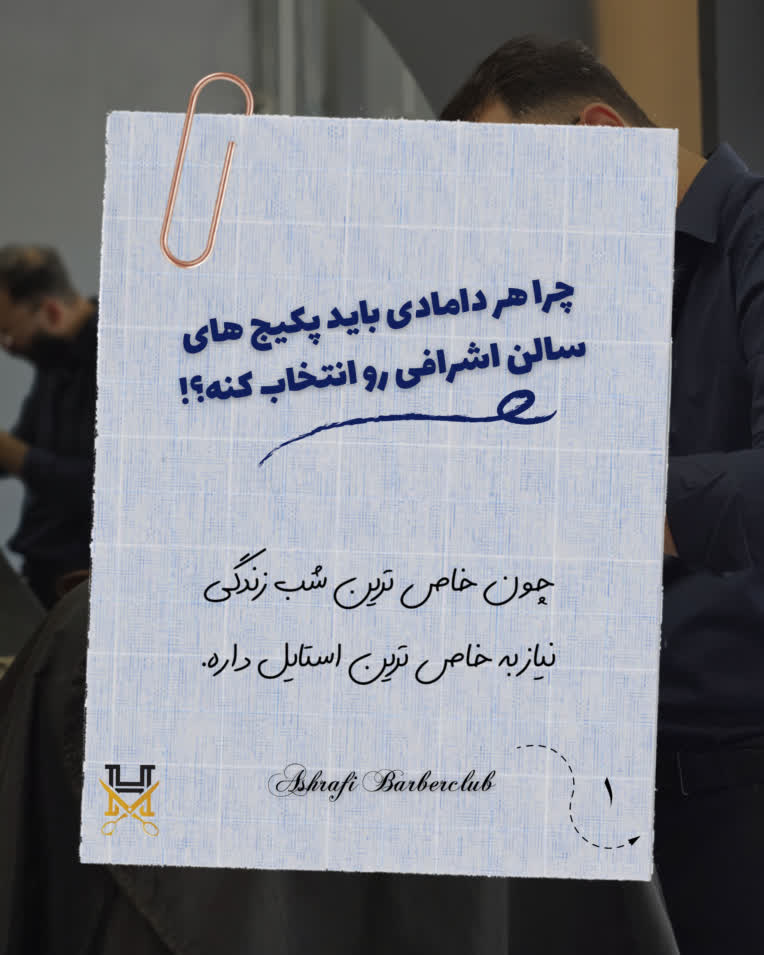 چرا هر دامادی باید پکیج های
سالن اشرافی رو انتخاب کنه؟!
چون خاص ترین شب زندگی
نیاز به خاص ترین استایل داره.
Ashrafi Barberclub
۱